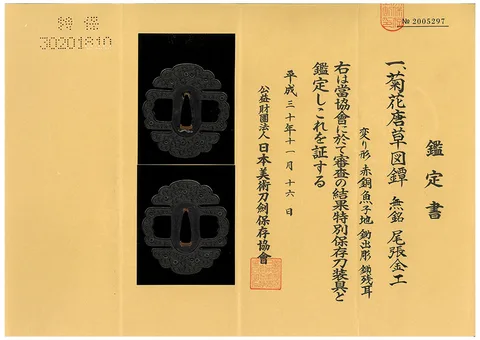 鑑定書
一、菊花唐草図鐔 無銘 尾張金工
変り形 赤銅魚子地 鋤出彫 鋤残耳
右は當協會に於て審査の結果特別保存刀装具と
鑑定しこれを証する
平成三十年十一月十六日
公益財團法人 日本美術刀劍保存協會
№ 2005297
特保
30201810